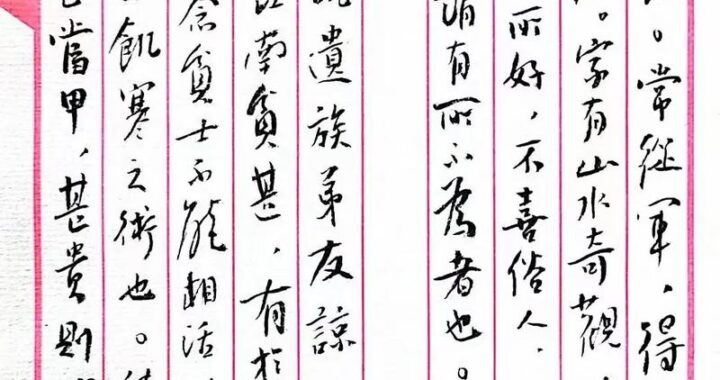 。常從軍，得
。家有山水奇觀，
所好，不喜俗人，
有所不為者也。
遺族弟友諒
南貧甚，有於
念貧士不能相活，
飢寒之術也。
當甲，甚貴則